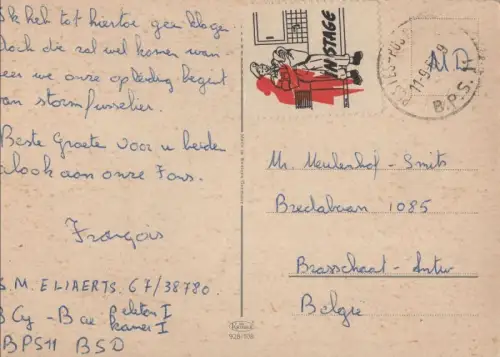 Ik heb tot hiertoe geen klagen
doch die zal wel komen wan
neer we onze opleiding begint
van stormfuselier.
Beste Groeten voor u beiden
alook aan onze Fons.
François
S.M. ELIAERTS. 67/38780
B Cy - B Cie Peloton I
kamer I
BPS11 BSD
INSTAGE
M D
B.P.S. 11
11-9
Mr. Meulenhof - Smits
Bredabaan 1085
Brasschaat - Antw
Belgie
928/108